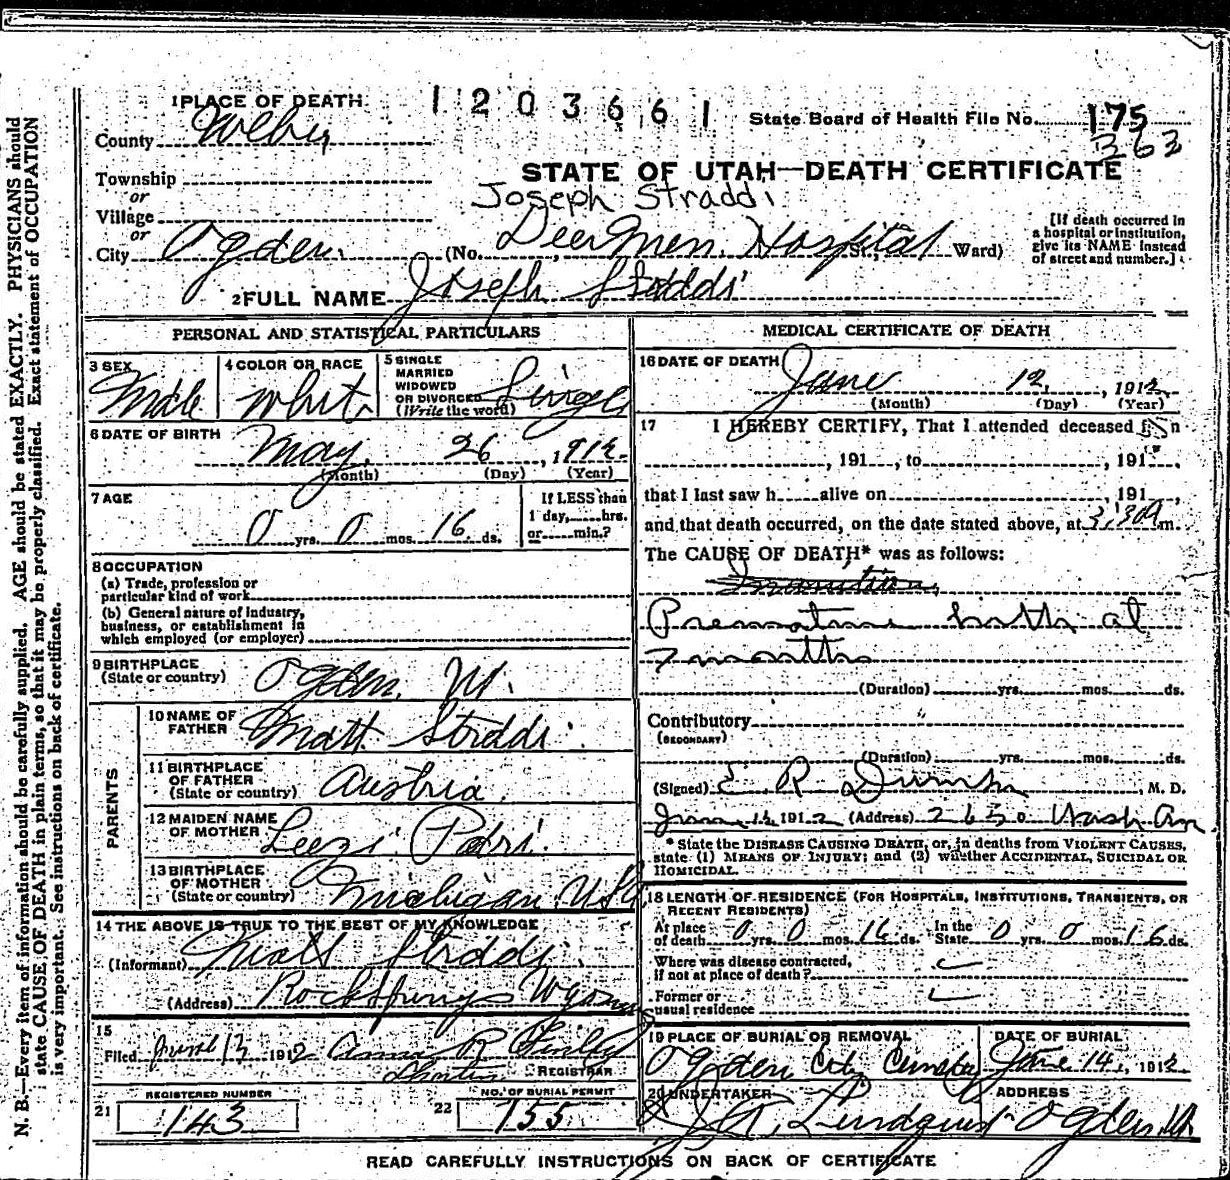 1 PLACE OF DEATH. 1203661 State Board of Health File No. 175
363
County Weber
STATE OF UTAH—DEATH CERTIFICATE
Township
or
Joseph Straddi
Village
or
City Ogden. (No. Dee Mem. Hospital St., Ward)
[If death occurred in
a hospital or institution,
give its NAME instead
of street and number.]
2 FULL NAME Joseph Stoddi
PERSONAL AND STATISTICAL PARTICULARS
3 SEX Male
4 COLOR OR RACE White
5 SINGLE
MARRIED
WIDOWED
OR DIVORCED
(Write the word) Single
6 DATE OF BIRTH
May 26, 1912
(Month) (Day) (Year)
7 AGE
0 yrs. 0 mos. 16 ds.
If LESS than
1 day, hrs.
or min.?
8 OCCUPATION
(a) Trade, profession or
particular kind of work
(b) General nature of industry,
business, or establishment in
which employed (or employer)
9 BIRTHPLACE
(State or country) Ogden, Ut.
PARENTS
10 NAME OF
FATHER Matt Stoddi
11 BIRTHPLACE
OF FATHER
(State or country) Austria.
12 MAIDEN NAME
OF MOTHER Leezi Podri.
13 BIRTHPLACE
OF MOTHER
(State or country) Michigan, USA
14 THE ABOVE IS TRUE TO THE BEST OF MY KNOWLEDGE
(Informant) Matt Stoddi
(Address) Rocksprings Wyoming
15
Filed June 13 1912 Anna R.
REGISTRAR
REGISTERED NUMBER
21 143
NO. OF BURIAL PERMIT
22 755
MEDICAL CERTIFICATE OF DEATH
16 DATE OF DEATH
June 12, 1912
(Month) (Day) (Year)
17 I HEREBY CERTIFY, That I attended deceased
, 191 , to , 191 ,
that I last saw h alive on , 191 ,
and that death occurred, on the date stated above, at 3:30 a m.
The CAUSE OF DEATH* was as follows:
Inanition
Premature birth at
7 months
(Duration) yrs. mos. ds.
Contributory
(SECONDARY)
(Duration) yrs. mos. ds.
(Signed) E R Dumke, M. D.
June 12 1912 (Address) 2650 Wash Av
* State the DISEASE CAUSING DEATH, or, in deaths from VIOLENT CAUSES,
state (1) MEANS OF INJURY; and (2) whether ACCIDENTAL, SUICIDAL OR
HOMICIDAL.
18 LENGTH OF RESIDENCE (FOR HOSPITALS, INSTITUTIONS, TRANSIENTS, OR
RECENT RESIDENTS)
At place
of death 0 yrs. 0 mos. 16 ds. In the
State 0 yrs. 0 mos. 16 ds.
Where was disease contracted,
if not at place of death?
Former or
usual residence
19 PLACE OF BURIAL OR REMOVAL
Ogden City Cemetery
DATE OF BURIAL
June 14, 1912
20 UNDERTAKER
Lindquist
ADDRESS
Ogden, Ut
READ CAREFULLY INSTRUCTIONS ON BACK OF CERTIFICATE
N. B.—Every item of information should be carefully supplied. AGE should be stated EXACTLY. PHYSICIANS should
state CAUSE OF DEATH in plain terms, so that it may be properly classified. Exact statement of OCCUPATION
is very important. See instructions on back of certificate.